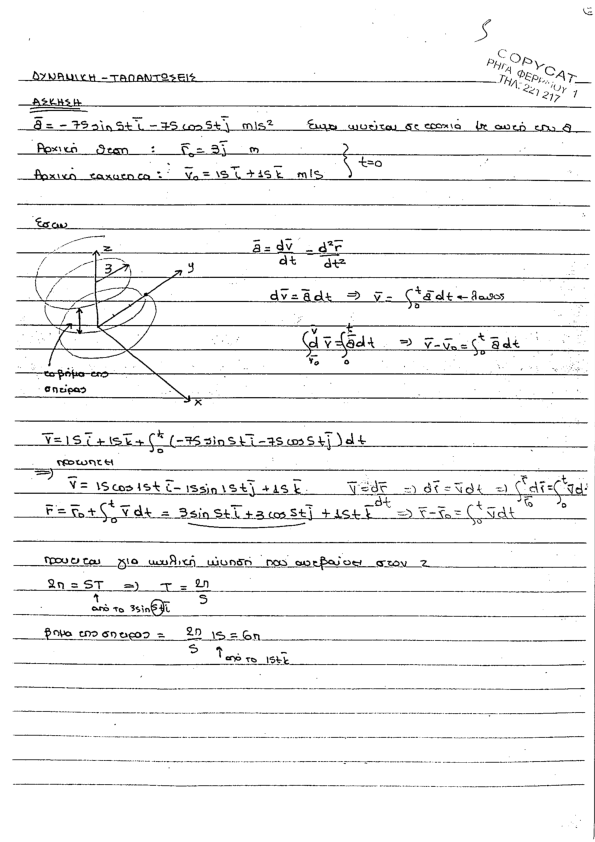 5
COPYCAT
ΡΗΓΑ ΦΕΡΡΑΙΟΥ 1
ΤΗΛ: 221 217
ΔΥΝΑΜΙΚΗ - ΤΑΛΑΝΤΩΣΕΙΣ
ΑΣΚΗΣΗ
ā = -75sin5t ī - 75cos5t j̄ m/s² Σωμα κινείται σε τροχιά με αυτό την a.
Αρχική θεση : r̄₀ = 3j̄ m
Αρχική ταχυτητα : v̄₀ = 15ī + 15k̄ m/s
t=0
Εστω
z
3
y
x
το βήμα της
σπείρας
ā = dv̄/dt = d²r̄/dt²
dv̄ = ādt ⇒ v̄ = ∫₀ᵗ ādt ← λαθος
∫dv̄ = ∫₀ᵗ ādt ⇒ v̄ - v̄₀ = ∫₀ᵗ ādt
v̄ = 15ī + 15k̄ + ∫₀ᵗ (-75sin5t ī - 75cos5t j̄) dt
προκυπτει
⇒ v̄ = 15cos15t ī - 15sin15t j̄ + 15k̄ v̄ = dr̄/dt ⇒ dr̄ = v̄dt ⇒ ∫dr̄ = ∫₀ᵗ v̄d
r̄ = r̄₀ + ∫₀ᵗ v̄dt = 3sin5t ī + 3cos5t j̄ + 15t k̄ ⇒ r̄ - r̄₀ = ∫₀ᵗ v̄dt
προκειται για κυκλική κίνηση που ανεβαίνει στον z
2π = 5T ⇒ T = 2π/5
από το 3sin5t ī
βημα της σπειρας = 2π/5 15 = 6π
από το 15t k̄